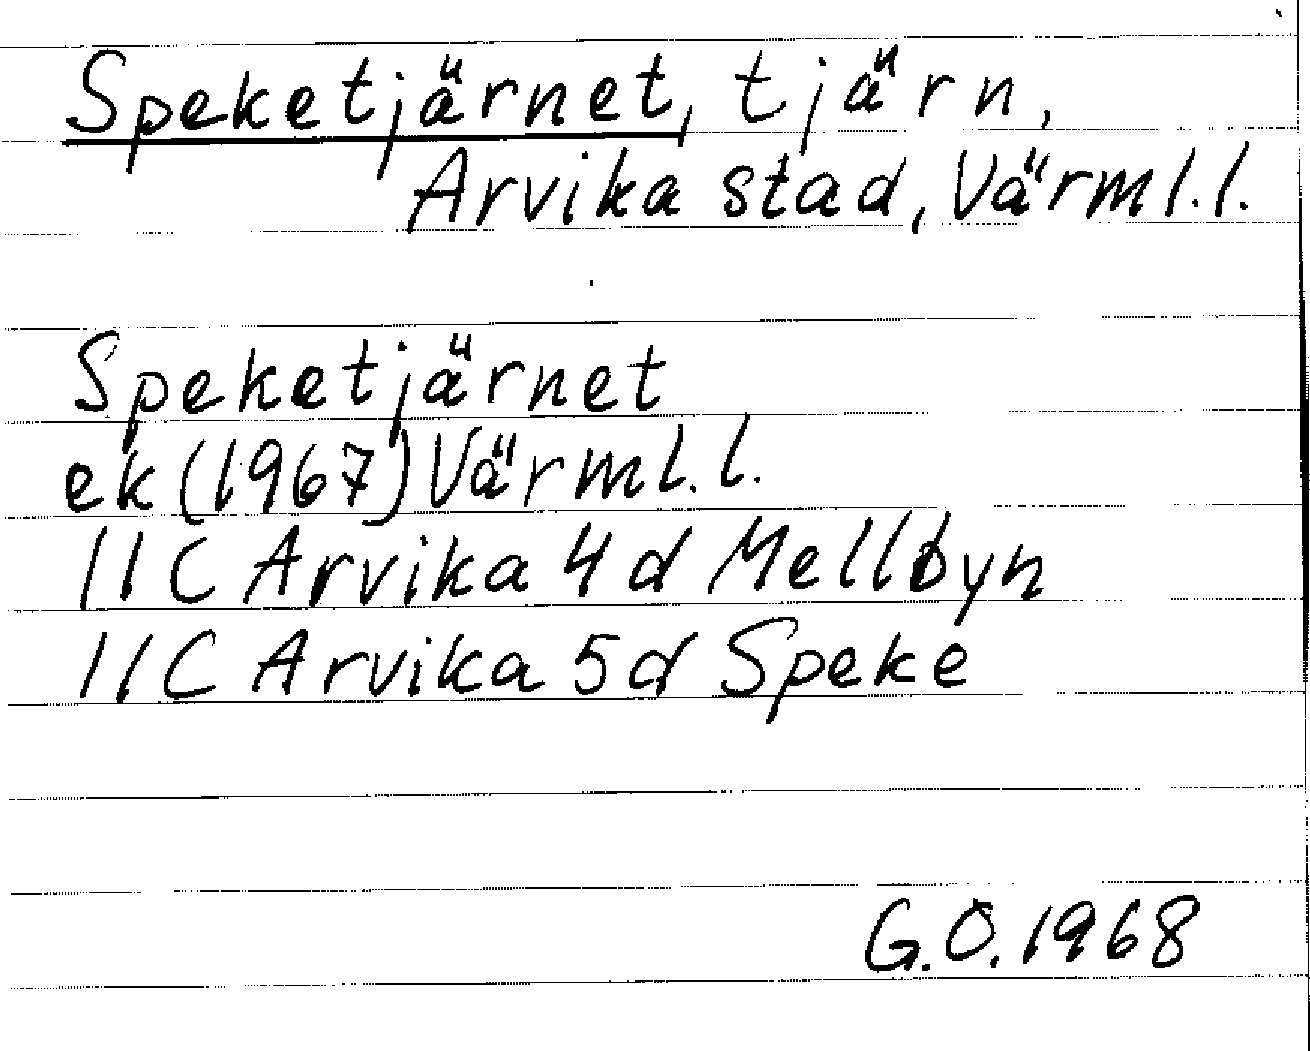 Speketjärnet, tjärn,
Arvika stad, Värml.l.
Speketjärnet
ek (1967) Värml.l.
11C Arvika 4d Mellbyn
11C Arvika 5d Speke
G.O. 1968